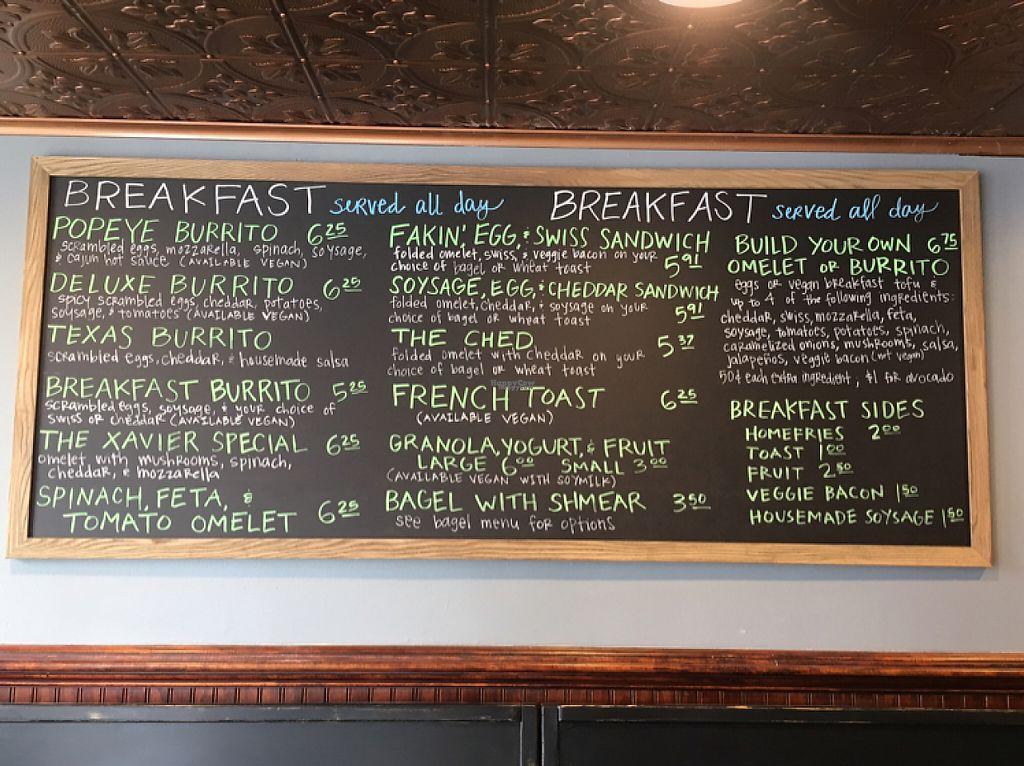 BREAKFAST served all day
POPEYE BURRITO 6.25
scrambled eggs, mozzarella, spinach, soysage,
& cajun hot sauce (AVAILABLE VEGAN)
DELUXE BURRITO 6.25
spicy scrambled eggs, cheddar, potatoes,
soysage, & tomatoes (AVAILABLE VEGAN)
TEXAS BURRITO
scrambled eggs, cheddar, & housemade salsa
BREAKFAST BURRITO 5.25
scrambled eggs, soysage, & your choice of
swiss or cheddar (AVAILABLE VEGAN)
THE XAVIER SPECIAL 6.25
omelet with mushrooms, spinach,
cheddar, & mozzarella
SPINACH, FETA, &
TOMATO OMELET 6.25
BREAKFAST served all day
FAKIN' EGG, & SWISS SANDWICH
folded omelet, swiss, & veggie bacon on your
choice of bagel or wheat toast 5.91
SOYSAGE, EGG, & CHEDDAR SANDWICH
folded omelet, cheddar, & soysage on your
choice of bagel or wheat toast 5.91
THE CHED 5.37
folded omelet with cheddar on your
choice of bagel or wheat toast
FRENCH TOAST 6.25
(AVAILABLE VEGAN)
GRANOLA, YOGURT, & FRUIT
LARGE 6.00 SMALL 3.00
(AVAILABLE VEGAN WITH SOYMILK)
BAGEL WITH SHMEAR 3.50
see bagel menu for options
BUILD YOUR OWN 6.75
OMELET OR BURRITO
eggs or vegan breakfast tofu &
up to 4 of the following ingredients:
cheddar, swiss, mozzarella, feta,
soysage, tomatoes, potatoes, spinach,
caramelized onions, mushrooms, salsa,
jalapeños, veggie bacon (not vegan)
50¢ each extra ingredient, $1 for avocado
BREAKFAST SIDES
HOMEFRIES 2.00
TOAST 1.00
FRUIT 2.50
VEGGIE BACON 1.50
HOUSEMADE SOYSAGE 1.50